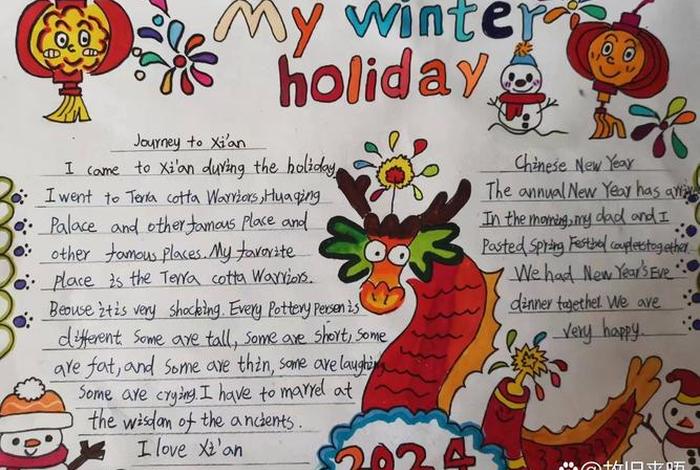 My winter
holiday
Journey to Xi'an
I came to Xi'an during the holiday
I went to Terra cotta Warriors, Huaqing
Palace and other famous Place and
other famous Places. My favorite
Place is the Terra cotta Warriors.
Beouse it is very shocking. Every Pottery Person is
different. Some are tall, some are short, Some
are fat, and some are thin, some are laughing
Some are crying. I have to marrel at
the wisdom of the ancients.
I love Xi'an
Chinese New Year
The annual New Year has
In the morning, my dad and I
Pasted Spring Festival couplets together
We had New Year's Eve
dinner together. We are
very happy.
2024